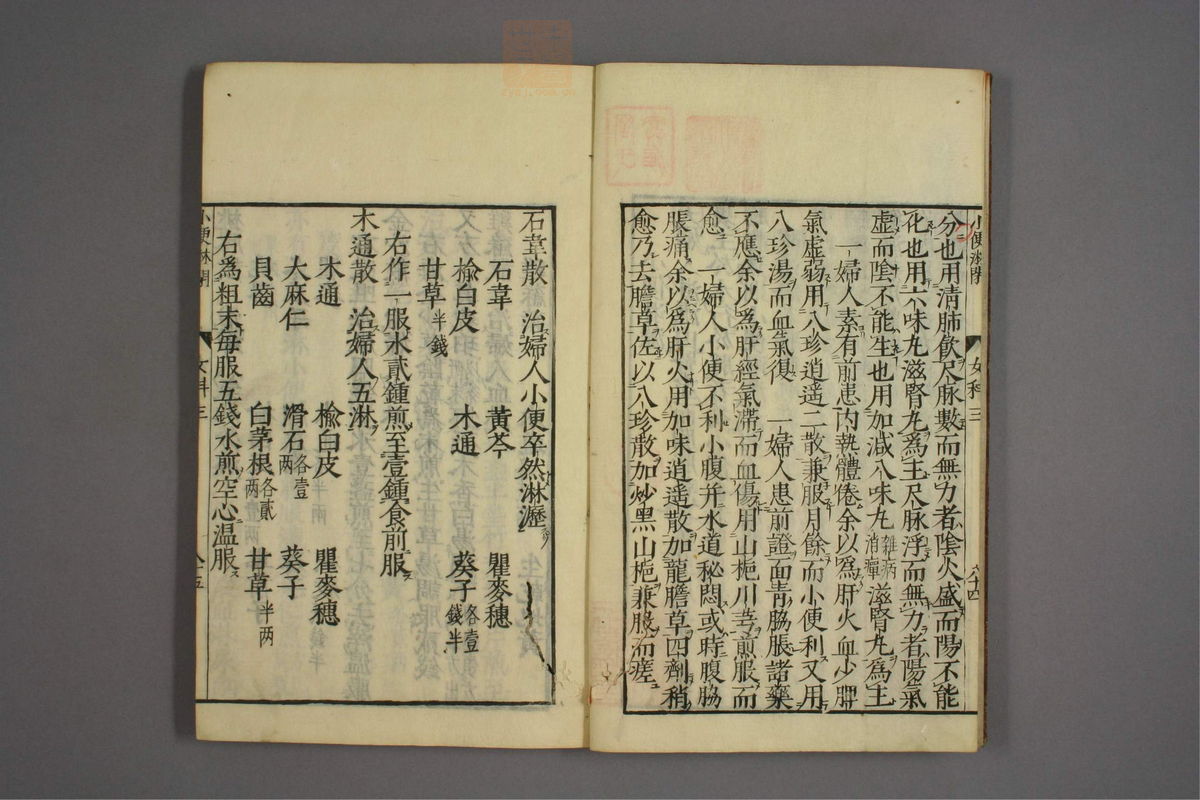 小便淋閉
女科三
六十四
分也用清肺飲尺脉數而無力者陰火盛而陽不能
化也用六味丸滋腎丸爲主尺脉浮而無力者陽氣
虛而陰不能生也用加减八味丸雜病消癉滋腎丸爲主
一婦人素有前患内熱體倦余以爲肝火血少脾
氣虛弱用八珍逍遥二散兼服月餘而小便利又用
八珍湯而血氣復 一婦人患前證面青脇脹諸藥
不應余以爲肝經氣滯而血傷用山梔川芎煎服而
愈 一婦人小便不利小腹并水道秘悶或時腹脇
脹痛余以爲肝火用加味逍遥散加龍膽草四劑稍
愈乃去膽草佐以八珍散加炒黑山梔兼服而瘥
石韋散 治婦人小便卒然淋瀝
石韋 黄芩 瞿麥穗
榆白皮 木通 葵子各壹錢半
甘草半錢
右作一服水貳鍾煎至壹鍾食前服
木通散 治婦人五淋
木通 榆白皮 瞿麥穗
大麻仁 滑石各壹兩 葵子
貝齒 白茅根各貳兩 甘草半兩
右爲粗末每服五錢水煎空心温服
小便淋閉
女科三